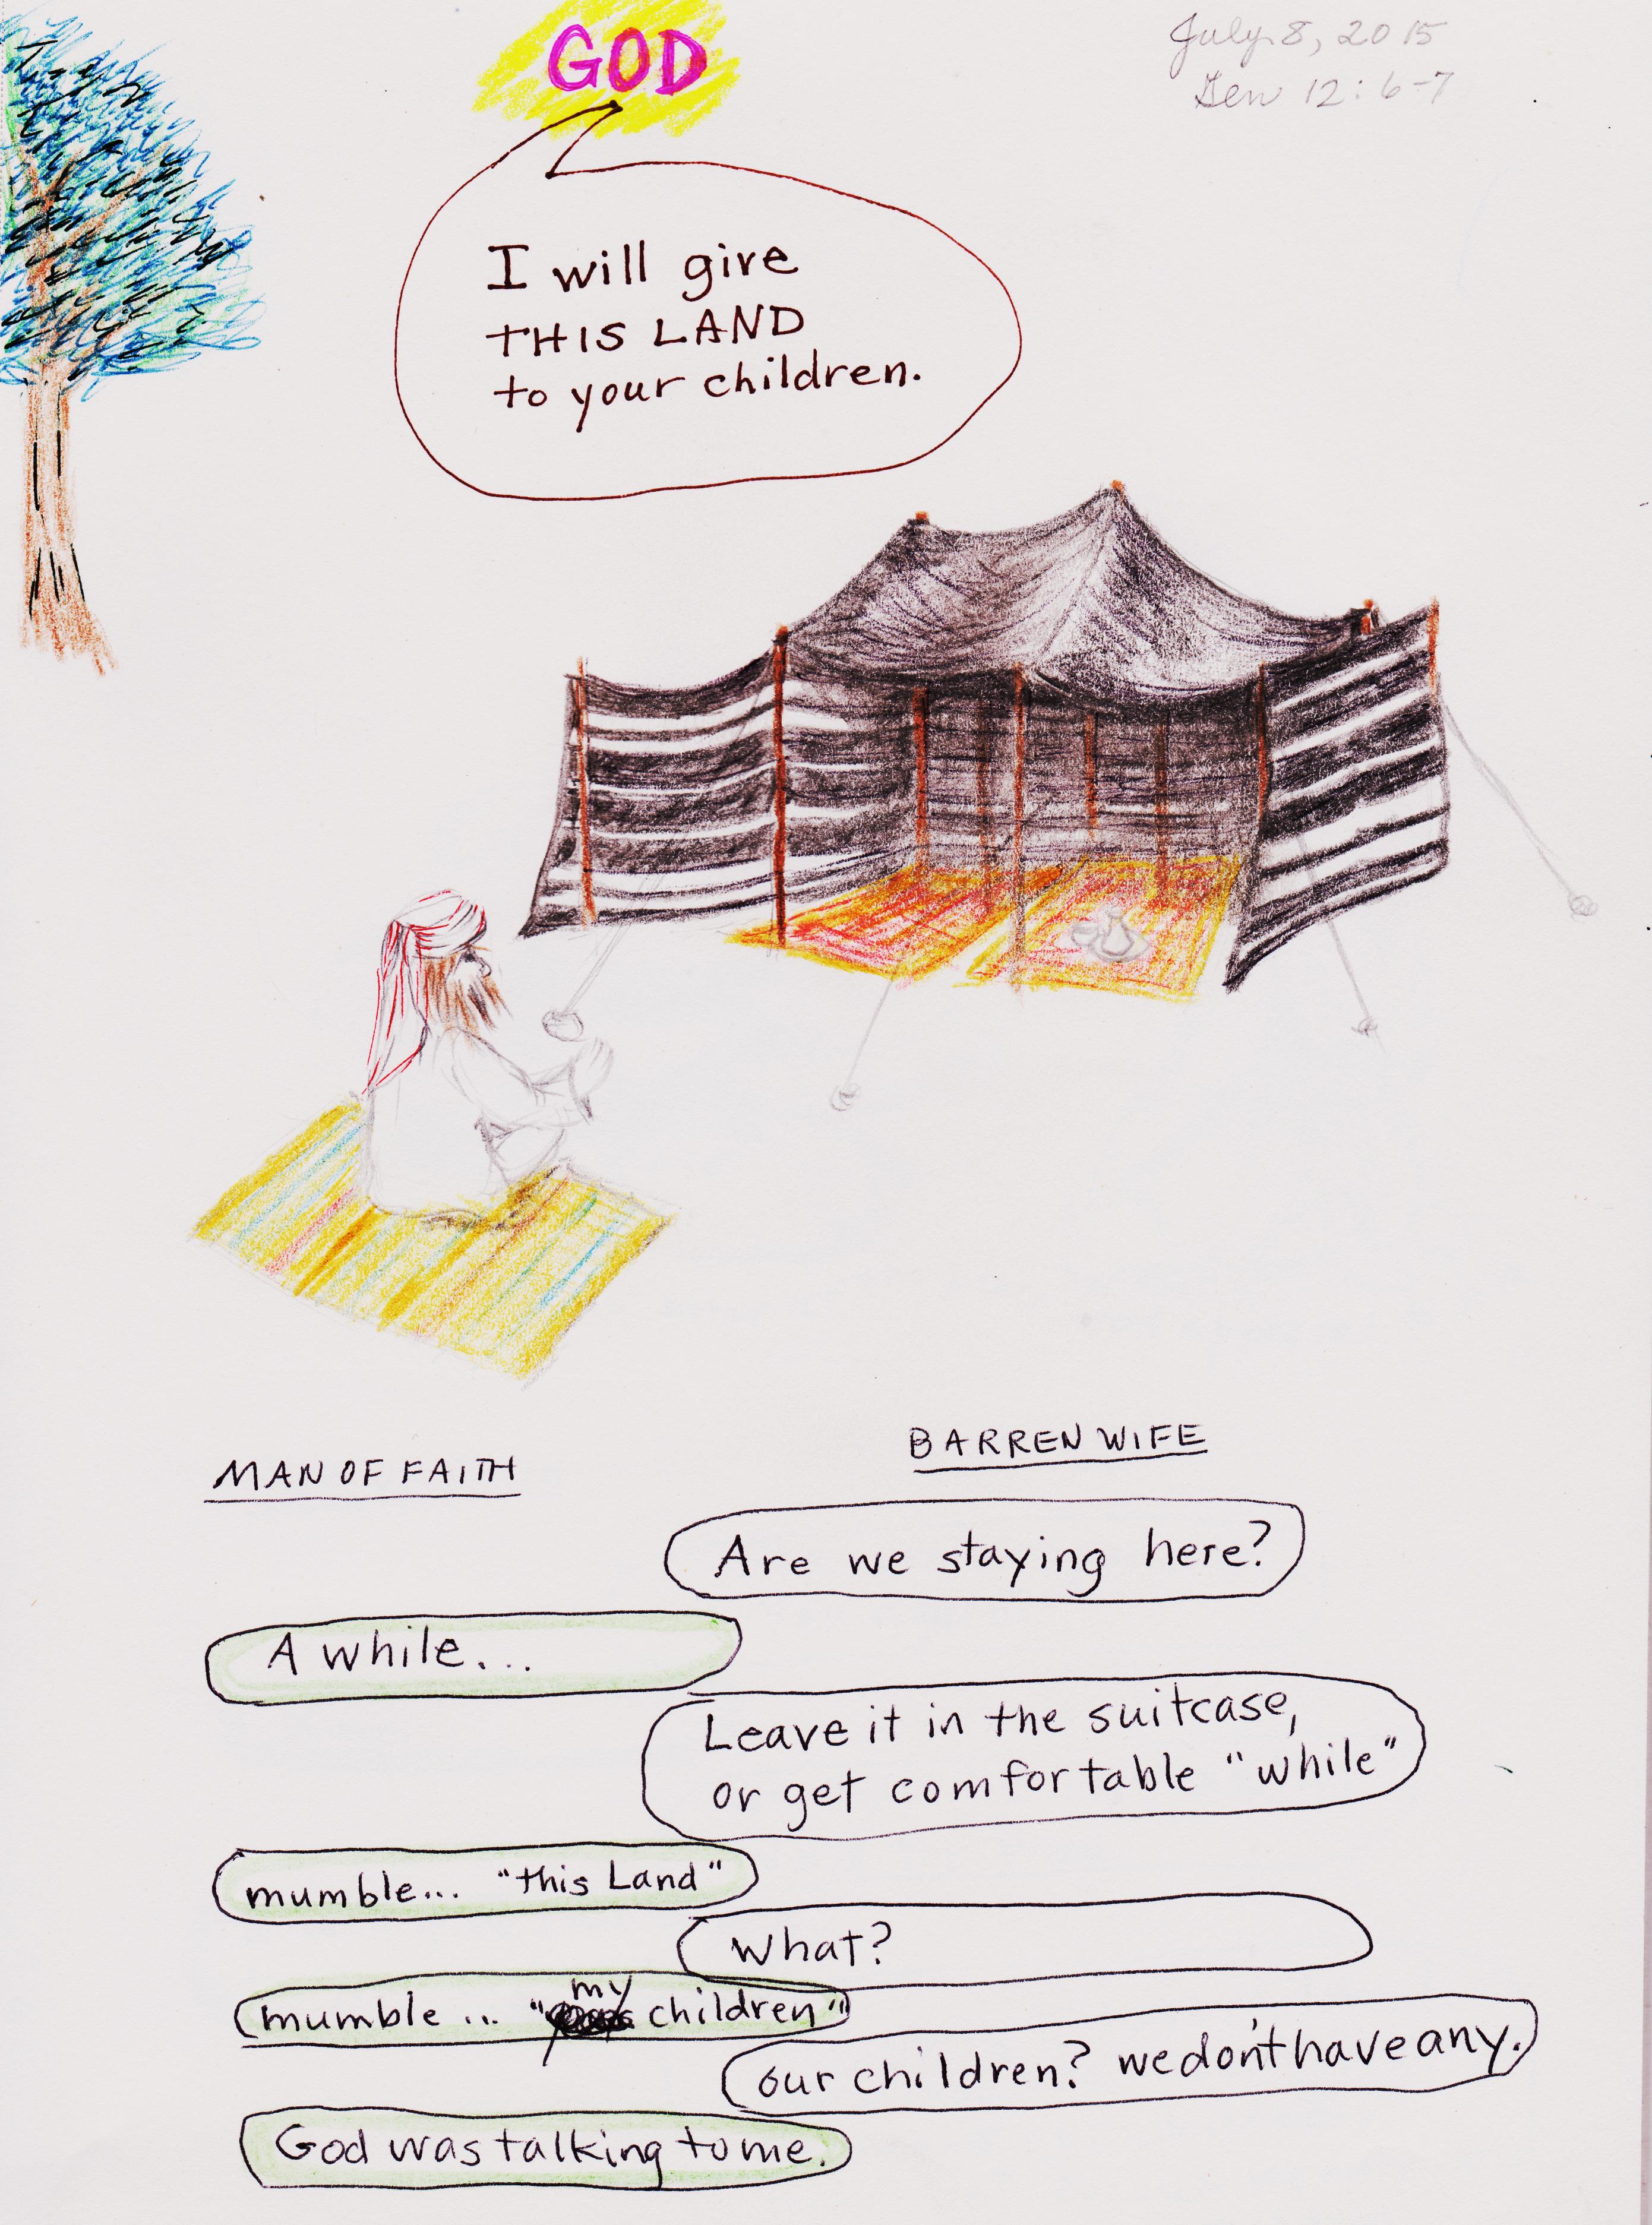 GOD
July 8, 2015
Gen 12:6-7
I will give
THIS LAND
to your children.
MAN OF FAITH
BARREN WIFE
Are we staying here?
A while...
Leave it in the suitcase,
or get comfortable "while"
mumble... "this Land"
What?
mumble... "my children"
our children? we don't have any.
God was talking to me.